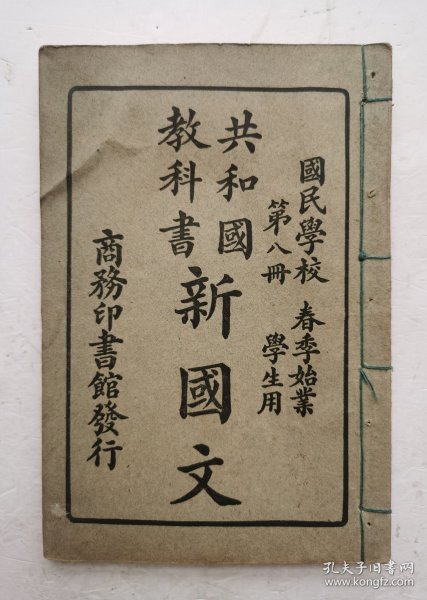 國民學校 春季始業
第八冊 學生用
共和國
教科書
新國文
商務印書館發行
孔夫子旧书网
www.kongfz.com